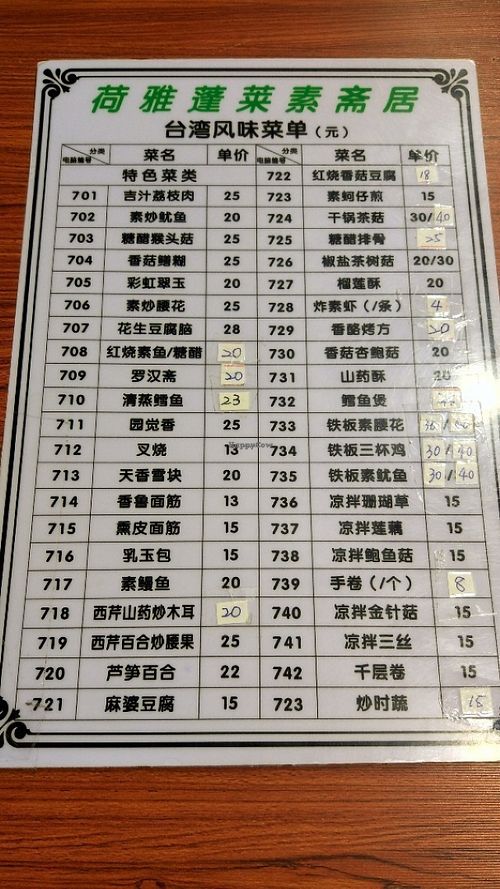 荷雅蓬莱素斋居
台湾风味菜单（元）
分类 电脑编号 菜名 单价 分类 电脑编号 菜名 单价
特色菜类 722 红烧香菇豆腐 18
701 吉汁荔枝肉 25 723 素蚵仔煎 15
702 素炒鱿鱼 20 724 干锅茶菇 30/40
703 糖醋猴头菇 25 725 糖醋排骨 25
704 香菇鳝糊 25 726 椒盐茶树菇 20/30
705 彩虹翠玉 20 727 榴莲酥 20
706 素炒腰花 25 728 炸素虾（/条） 4
707 花生豆腐脑 28 729 香酪烤方 20
708 红烧素鱼/糖醋 20 730 香菇杏鲍菇 20
709 罗汉斋 20 731 山药酥 20
710 清蒸鳕鱼 23 732 鳕鱼煲
711 园觉香 25 733 铁板素腰花
712 叉烧 13 734 铁板三杯鸡 30/40
713 天香雪块 20 735 铁板素鱿鱼 30/40
714 香鲁面筋 13 736 凉拌珊瑚草 15
715 熏皮面筋 15 737 凉拌莲藕 15
716 乳玉包 15 738 凉拌鲍鱼菇 15
717 素鳗鱼 20 739 手卷（/个） 8
718 西芹山药炒木耳 20 740 凉拌金针菇 15
719 西芹百合炒腰果 25 741 凉拌三丝 15
720 芦笋百合 22 742 千层卷 15
721 麻婆豆腐 15 723 炒时蔬 15
HappyCow